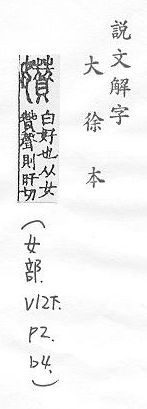 説文解字
大徐本
白好也从女
贊聲則旰切
(女部.V12下.P2.b4.)